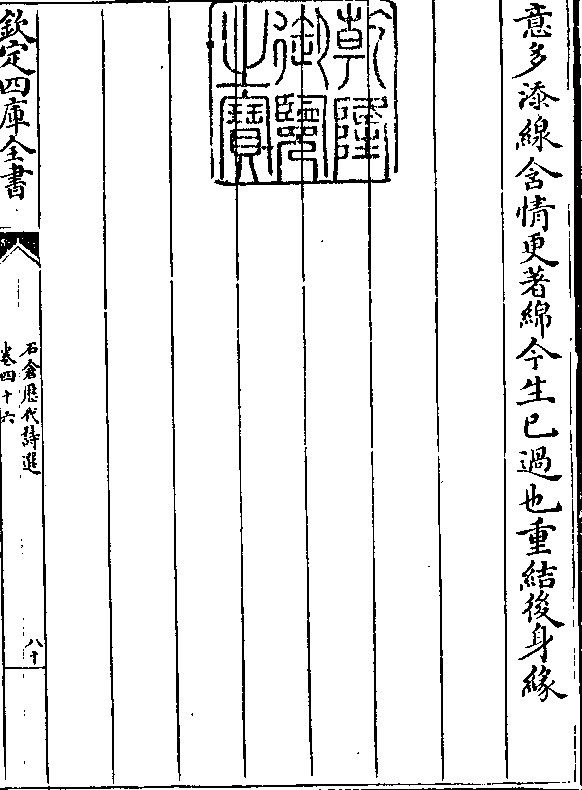 意多添線含情更著綿今生已過也重結後身緣
乾隆
御覽
之寶
欽定四庫全書
石倉歷代詩選
卷四十六
八十